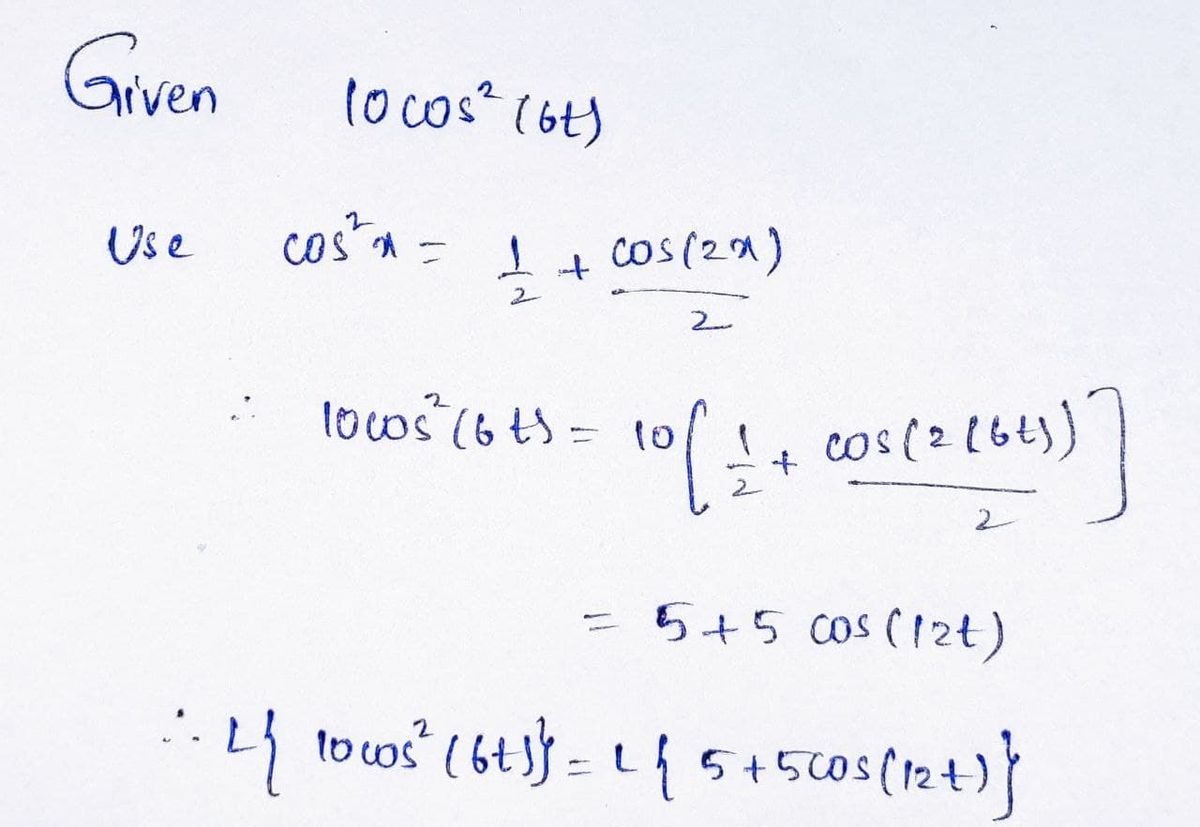 Given 10cos²(6t)
Use cos²x = 1/2 + cos(2x)/2
∴ 10cos²(6t) = 10[1/2 + cos(2(6t))/2]
= 5+5 cos(12t)
∴ L{10cos²(6t)} = L{5+5cos(12t)}